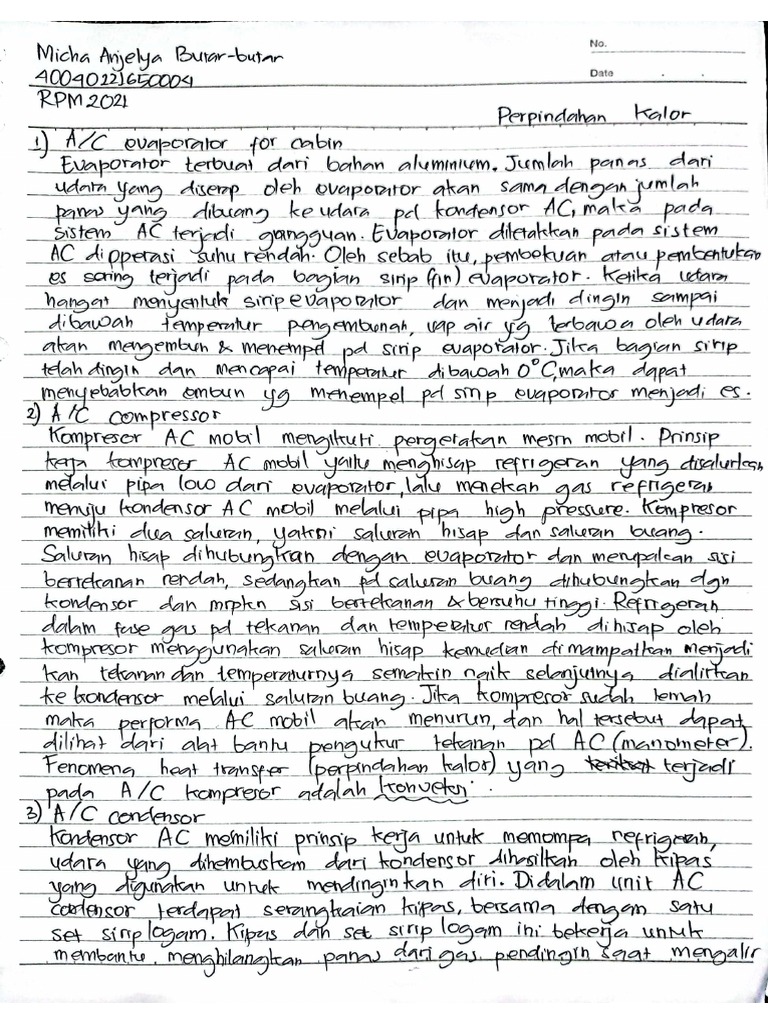 No.
Date
Micha Anjelya Butar-butar
40040221650004
RPM 2021
Perpindahan Kalor
1) A/C evaporator for cabin
Evaporator terbuat dari bahan aluminium. Jumlah panas dari
udara yang diserap oleh evaporator akan sama dengan jumlah
panas yang dibuang ke udara pd kondensor AC, maka pada
sistem AC terjadi gangguan. Evaporator diletakkan pada sistem
AC dipperasi suhu rendah. Oleh sebab itu, pembekuan atau pembentukan
es sering terjadi pada bagian sirip (fin) evaporator. Ketika udara
hangat menyentuk sirip evaporator dan menjadi dingin sampai
dibawah temperatur pengembunan, uap air yg terbawa oleh udara
akan mengembun & menempel pd sirip evaporator. Jika bagian sirip
telah dingin dan mencapai temperatur dibawah 0°C, maka dapat
menyebabkan embun yg menempel pd sirip evaporator menjadi es.
2) A/C compressor
Kompresor AC mobil mengikuti pergerakan mesin mobil. Prinsip
kerja kompresor AC mobil yaitu menghisap refrigeran yang disalurkan
melalui pipa low dari evaporator, lalu menekan gas refrigeran
menuju kondensor AC mobil melalui pipa high pressure. Kompresor
memiliki dua saluran, yakni saluran hisap dan saluran buang.
Saluran hisap dihubungkan dengan evaporator dan merupakan sisi
bertekanan rendah, sedangkan pd saluran buang dihubungkan dgn
kondensor dan mrpkn sisi bertekanan & bersuhu tinggi. Refrigeran
dalam fase gas pd tekanan dan temperatur rendah dihisap oleh
kompresor menggunakan saluran hisap kemudian dimampatkan menjadi
kan tekanan dan temperaturnya semakin naik selanjutnya dialirkan
ke kondensor melalui saluran buang. Jika kompresor sudah lemah
maka performa AC mobil akan menurun, dan hal tersebut dapat
dilihat dari alat bantu pengukur tekanan pd AC (manometer).
Fenomena heat transfer (perpindahan kalor) yang terjadi
pada A/C kompresor adalah konveksi.
3) A/C condensor
Kondensor AC memiliki prinsip kerja untuk memompa refrigeran,
udara yang dihembuskan dari kondensor dihasilkan oleh kipas
yang digunakan untuk mendinginkan diri. Didalam unit AC
condensor terdapat serangkaian kipas, bersama dengan satu
set sirip logam. Kipas dan set sirip logam ini bekerja untuk
membantu menghilangkan panas dari gas pendingin saat mengalir